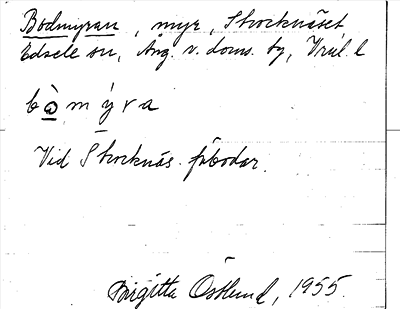 Bodmyran, myr, Stocknäset
Edsele sn, Ång. v. doms. by, Vräl. l
bò̱mýra
Vid Stocknäs fäbodar.
Birgitta Östlund, 1955.